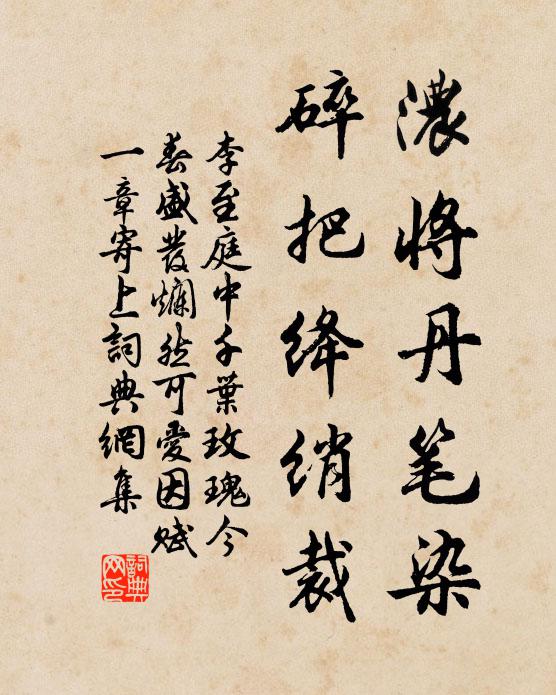 濃將丹笔染
碎把绛綃裁
李至庭中千葉玫瑰今
春盛發爛然可愛因赋
一章寄上詞典網集
詞典
网印